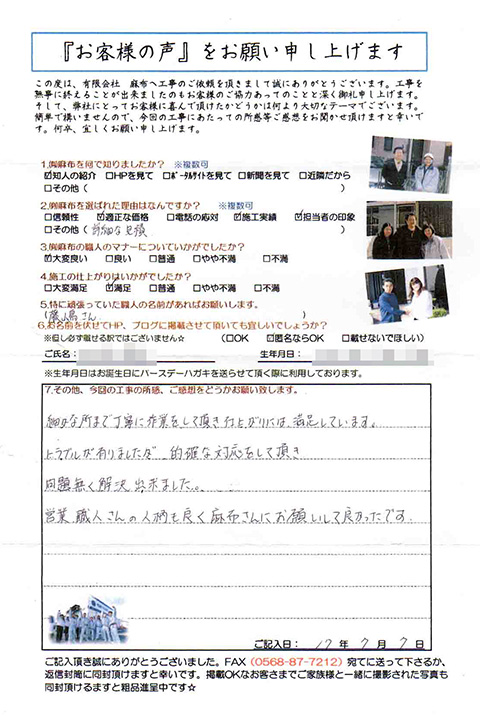 『お客様の声』をお願い申し上げます
この度は、有限会社 麻布へ工事のご依頼を頂きまして誠にありがとうございます。工事を
無事に終えることが出来ましたのもお客様のご協力あってのことと深く御礼申し上げます。
そして、弊社にとってお客様に喜んで頂けたかどうかは何より大切なテーマでございます。
簡単で構いませんので、今回の工事にあたっての所感等ご感想をお聞かせ頂けますと幸いで
す。何卒、宜しくお願い申し上げます。
1.㈲麻布を何で知りましたか? ※複数可
☑知人の紹介 □HPを見て □ポータルサイトを見て □新聞を見て □近隣だから
□その他( )
2.㈲麻布を選ばれた理由はなんですか? ※複数可
□信頼性 ☑適正な価格 □電話の応対 ☑施工実績 ☑担当者の印象
□その他( 詳細な見積 )
3.㈲麻布の職人のマナーについていかがでしたか?
☑大変良い □良い □普通 □やや不満 □不満
4.施工の仕上がりはいかがでしたか?
□大変満足 ☑満足 □普通 □やや不満 □不満
5.特に頑張っていた職人の名前があればお願いします。
( 島さん )
6.お名前を伏せてHP、ブログに掲載させて頂いても宜しいでしょうか?
※但し必ず載せる訳ではございません☆ (□OK ☑匿名ならOK □載せないでほしい)
ご氏名: 生年月日:
※生年月日はお誕生日にバースデーハガキを送らせて頂く際に利用しております。
7.その他、今回の工事の所感、ご感想をどうかお願い致します。
細かな所まで丁寧に作業をして頂き仕上がりには、満足しています。
トラブルが有りましたが、的確な対応をして頂き
問題無く解決出来ました。
営業職人さんの人柄も良く麻布さんにお願いして良かったです。
ご記入日: 17年 7月 7日
ご記入頂き誠にありがとうございました。FAX(0568-87-7212)宛てに送って下さるか、
返信封筒に同封頂けますと幸いです。掲載OKなお客さまでご家族様と一緒に撮影された写真も
同封頂けるますと粗品進呈中です☆